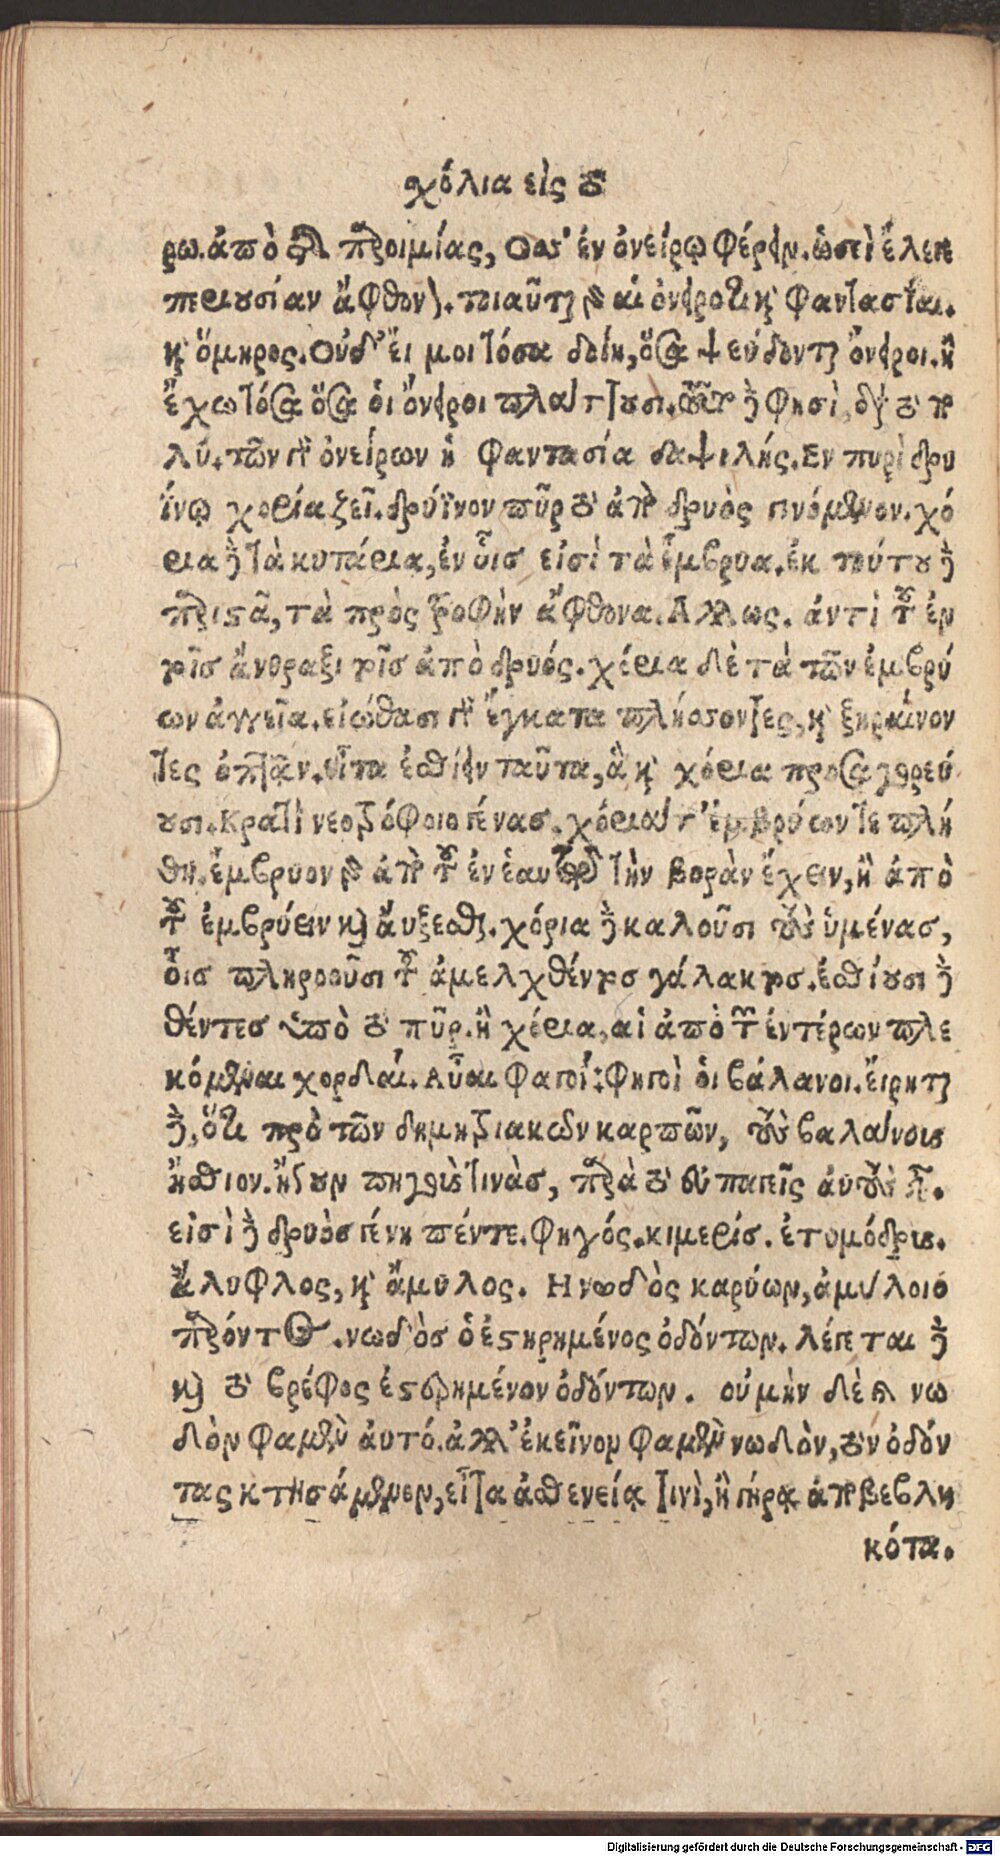 χόλια εἰς τὸ
ρω. ἀπὸ τῆς παροιμίας, Οσ' ἐν ὀνείρῳ φέρειν. ὡστὶ ἔλεγε
περιουσίαν ἄφθονον. τοιαῦται γὰρ αἱ ὀνειροτικαὶ φαντασίαι.
καὶ ὅμηρος. Οὐδ' ἔι μοι τόσα δοίη, ὅσα ψεύδονται ὄνειροι. ἢ
ἔχω τόσα ὅσα ὁι ὄνειροι πλάττουσι. δὲ φησὶ, διὰ τὸ πο
λύ. τῶν γὰρ ὀνείρων ἡ φαντασία δαψιλής. Εν πυρὶ δρυ
ΐνῳ χορία ζεῖ. δρύϊνον πῦρ τὸ ἀπὸ δρυὸς γινόμενον. χό
ρια δὲ τὰ κυπάρια, ἐν ὅις εἰσὶ τὰ ἔμβρυα. ἐκ τούτου δὲ
παριστᾶ, τὰ πρὸς τροφὴν ἄφθονα. Αλλως. ἀντὶ τοῦ ἐν
τοῖς ἄνθραξι τοῖς ἀπὸ δρυός. χόρια δὲ τὰ τῶν ἐμβρύ
ων ἀγγεῖα. εἰώθασι γὰρ ἔγκατα πλήσσοντες, καὶ ξηραίνον
τες ὀπτᾶν. εἶτα ἐσθίειν ταῦτα, ἃ καὶ χόρια προσαγορεύ
ουσι. Κρατὶ νεοτρόφοιο γένας. χόρια τ' ἐμβρύων τε πλή
θη. ἔμβρυον γὰρ ἀπὸ τοῦ ἐν ἑαυτῷ τὴν βορὰν ἔχειν, ἢ ἀπὸ
τοῦ ἐμβρύειν καὶ ἄυξεσθαι. χόρια δὲ καλοῦσι τοὺς ὑμένας,
ὅις πληροῦσι τοῦ ἀμελχθέντος γάλακτος. ἐσθίουσι δὲ
θέντες ὑπὸ τὸ πῦρ. ἢ χόρια, αἱ ἀπὸ τῶν ἐντέρων πλε
κόμεναι χορδαί. Αὖαι φαγοί: Φηγοὶ ὁι βάλανοι. ἔιρηται
δὲ, ὅτι πρὸ τῶν δημητριακῶν καρπῶν, τοὺς βαλάνους
ἤσθιον. ἤδουν πηγούς τινὰς, παρὰ τὸ
εἰσὶ δὲ δρυὸς γένη πέντε. Φηγός. κιμερίς. ἐτυμόδρις.
ἄλυφλος, καὶ ἄμυλος. Η νωδὸς καρύων, ἀμύλοιο
παρόντος. νωδὸς ὁ ἐστηρημένος ὀδόντων. λέγεται δὲ
καὶ τὸ βρέφος ἐστερημένον ὀδόντων. οὐ μὴν δὲ νω
δὸν φαμὲν ἀυτό. ἀλλ' ἐκεῖνον φαμὲν νωδὸν, τὸν ὀδόν
τας κτησάμενον, εἶτα ἀσθενείᾳ τινὶ, ἢ γήρᾳ ἀποβεβλη
κότα.
Digitalisierung gefördert durch die Deutsche Forschungsgemeinschaft - DFG